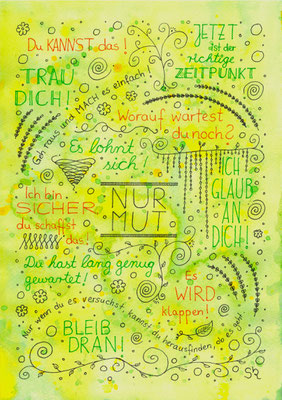 Du KANNST das!
JETZT
ist der
richtige
ZEITPUNKT
TRAU
DICH!
Geh raus und MACH es einfach!
Worauf wartest
du noch?
Es lohnt
sich!
ICH
GLAUB
AN
DICH!
Ich bin
SICHER
du schaffst
das!
NUR
MUT
Du hast lang genug
gewartet!
Es
WIRD
klappen!
Nur wenn du es versuchst, kannst du herausfinden, ob es geht!
BLEIB
DRAN!